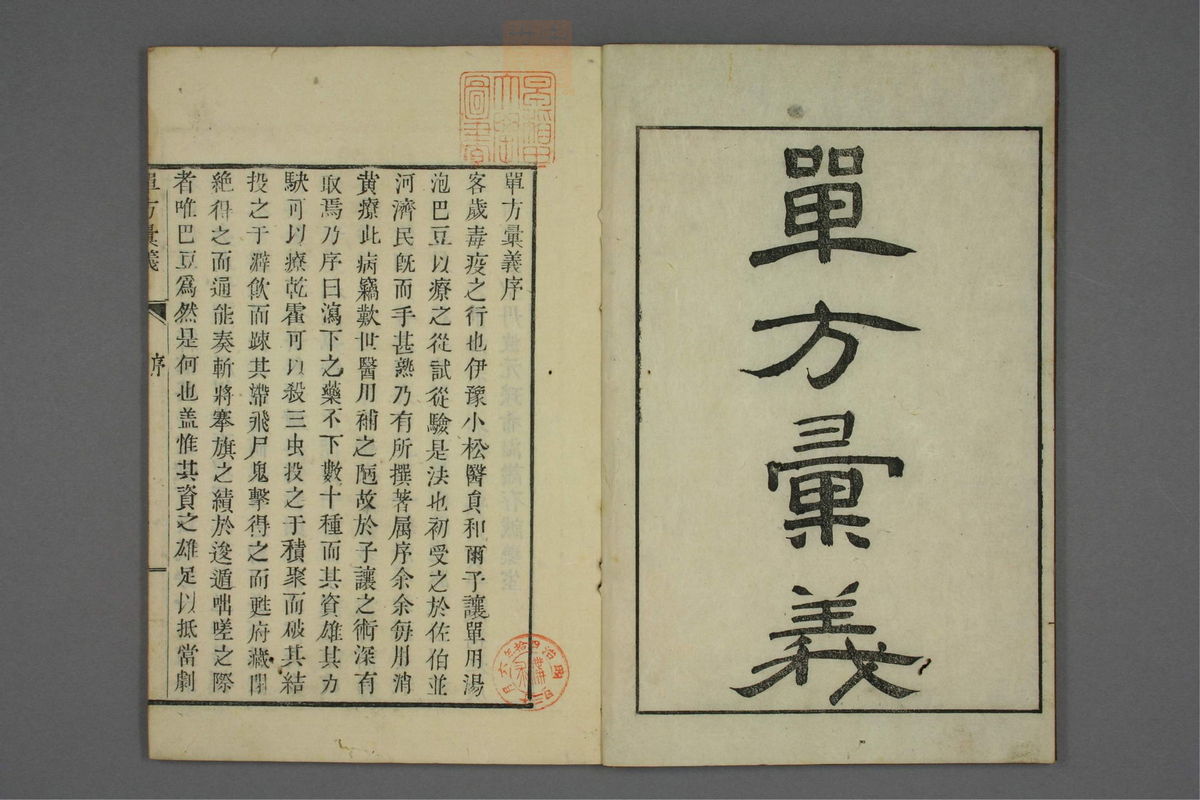 單方彙義
單方彙義序
客歲毒疫之行也伊豫小松醫員和爾子讓單用湯
泡巴豆以療之從試從驗是法也初受之於佐伯並
河濟民既而手甚熟乃有所撰著属序余余每用消
黄療此病竊歎世醫用補之陋故於子讓之術深有
取焉乃序曰瀉下之藥不下數十種而其資雄其力
駃可以療乾霍可以殺三虫投之于積聚而破其結
投之于癖飲而疎其滯飛尸鬼擊得之而甦府藏閉
絶得之而通能奏斬將搴旗之績於逡遁咄嗟之際
者唯巴豆爲然是何也盖惟其資之雄足以抵當劇
單方彙義
序